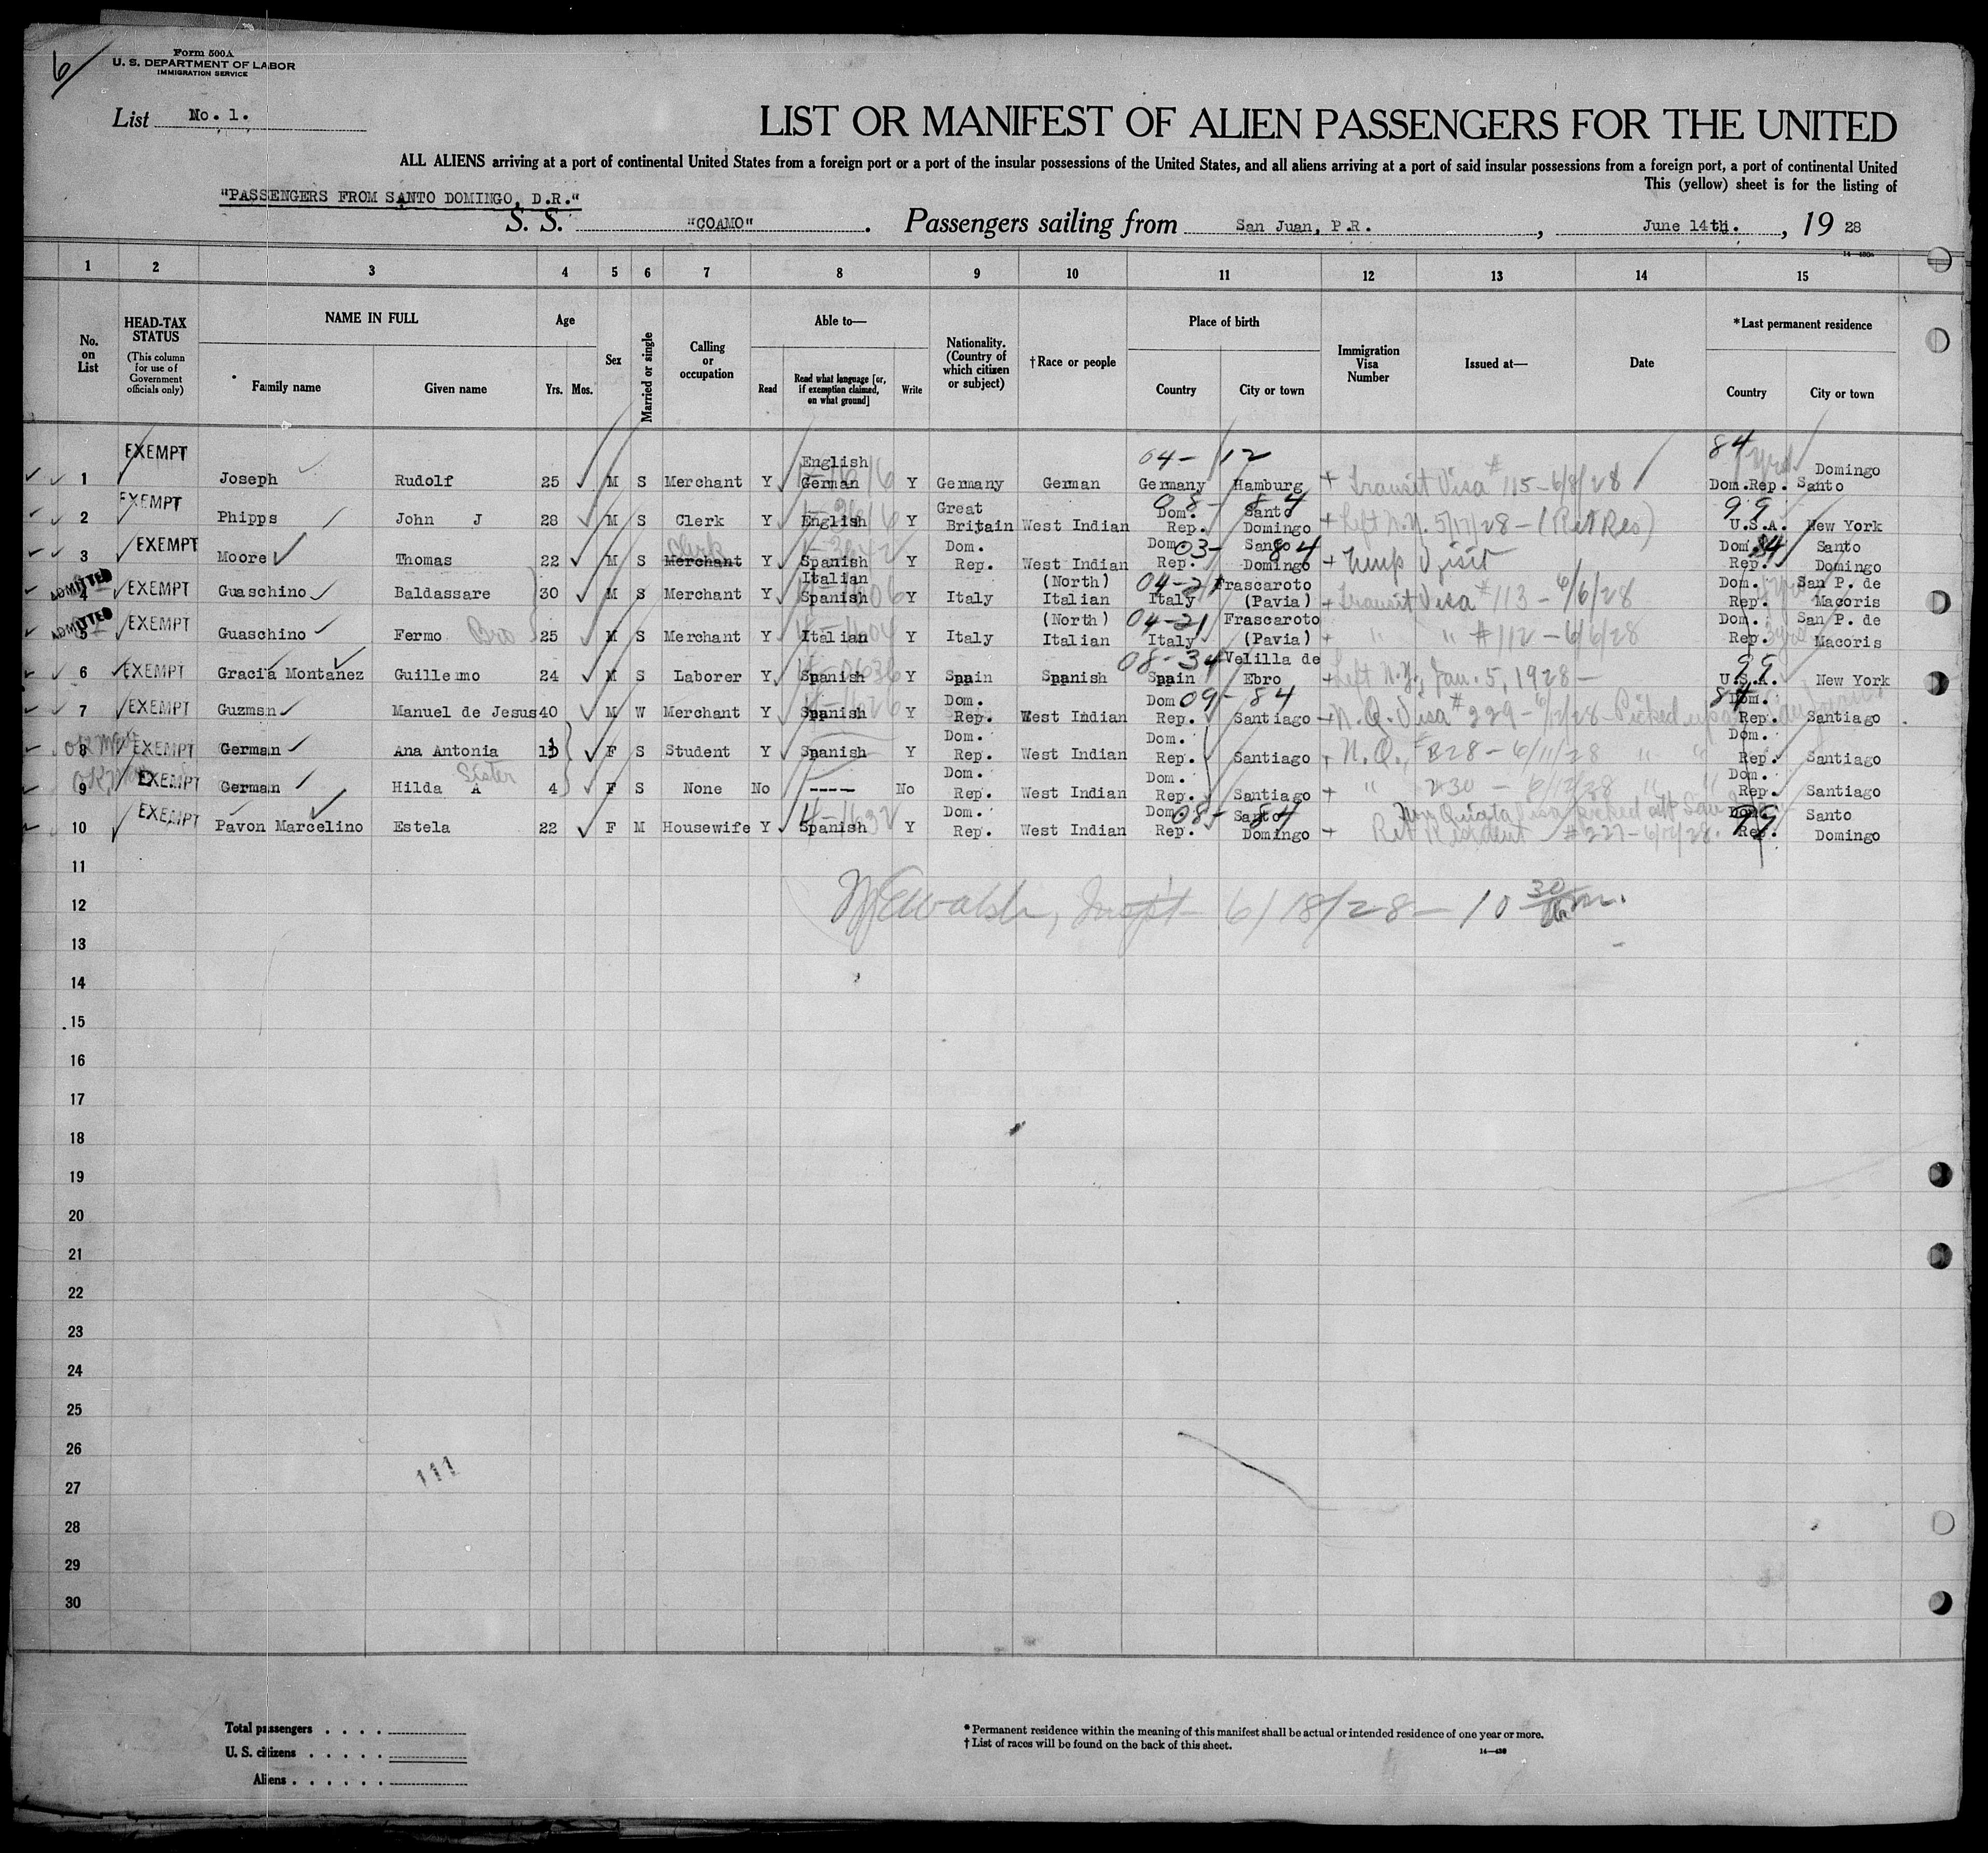 6
Form 500A
U. S. DEPARTMENT OF LABOR
IMMIGRATION SERVICE
List No. 1.
LIST OR MANIFEST OF ALIEN PASSENGERS FOR THE UNITED
ALL ALIENS arriving at a port of continental United States from a foreign port or a port of the insular possessions of the United States, and all aliens arriving at a port of said insular possessions from a foreign port, a port of continental United
This (yellow) sheet is for the listing of
"PASSENGERS FROM SANTO DOMINGO, D.R."
S. S. "COAMO". Passengers sailing from San Juan, P.R., June 14th., 19 28
1 2 3 4 5 6 7 8 9 10 11 12 13 14 15
No. on List
HEAD-TAX STATUS
(This column for use of Government officials only)
NAME IN FULL
Family name Given name
Age
Yrs. Mos.
Sex
Married or single
Calling or occupation
Able to—
Read Read what language [or, if exemption claimed, on what ground] Write
Nationality. (Country of which citizen or subject)
†Race or people
Place of birth
Country City or town
Immigration Visa Number
Issued at—
Date
*Last permanent residence
Country City or town
1 EXEMPT Joseph Rudolf 25 M S Merchant Y English German Y Germany German Germany Hamburg 04- 12 Transit Visa #115-6/8/28 84 Dom.Rep. Santo Domingo
2 EXEMPT Phipps John J 28 M S Clerk Y English Y Great Britain West Indian Dom. Rep. Santo Domingo 08- 84 Left N.Y. 5/17/28-(Ret Res) 99 U.S.A. New York
3 EXEMPT Moore Thomas 22 M S Merchant Clerk Y Spanish Y Dom. Rep. West Indian Dom. Rep. Santo Domingo 03- 84 Temp Visit Dom. Rep. 84 Santo Domingo
ADMITTED 4 EXEMPT Guaschino Baldassare 30 M S Merchant Y Italian Spanish Y Italy (North) Italian Italy Frascaroto (Pavia) 04-21 Transit Visa #113-6/6/28 Dom. Rep. San P. de Macoris
ADMITTED 5 EXEMPT Guaschino Fermo Bro 25 M S Merchant Y Italian Y Italy (North) Italian Italy Frascaroto (Pavia) 04-21 " " #112-6/6/28 Dom. Rep. 3yrs San P. de Macoris
6 EXEMPT Gracia Montanez Guillermo 24 M S Laborer Y Spanish Y Spain Spanish Spain Velilla de Ebro 08-34 Left N.Y. Jan. 5, 1928- 99 U.S.A. New York
7 EXEMPT Guzman Manuel de Jesus 40 M W Merchant Y Spanish Y Dom. Rep. West Indian Dom. Rep. Santiago 09-84 N.Q. Visa #229-6/12/28 Picked up at 84 Dom. Rep. Santiago
8 EXEMPT German Ana Antonia F S Student Y Spanish Y Dom. Rep. West Indian Dom. Rep. Santiago N.Q. 228-6/11/28 " " Dom. Rep. Santiago
9 EXEMPT German Hilda A Sister 4 F S None No ---- No Dom. Rep. West Indian Dom. Rep. Santiago " 230-6/12/28 " " Dom. Rep. Santiago
10 EXEMPT Pavon Marcelino Estela 22 F M Housewife Y Spanish Y Dom. Rep. West Indian Dom. Rep. Santo Domingo 08- 84 Non Quota Visa picked Ret Resident #227-6/12/28. 99 Dom. Rep. Santo Domingo
11
12 6/18/28-10 30
13
14
15
16
17
18
19
20
21
22
23
24
25
26
111
27
28
29
30
Total passengers . . . .
U. S. citizens . . . . .
Aliens . . . . . .
* Permanent residence within the meaning of this manifest shall be actual or intended residence of one year or more.
† List of races will be found on the back of this sheet.
14—430